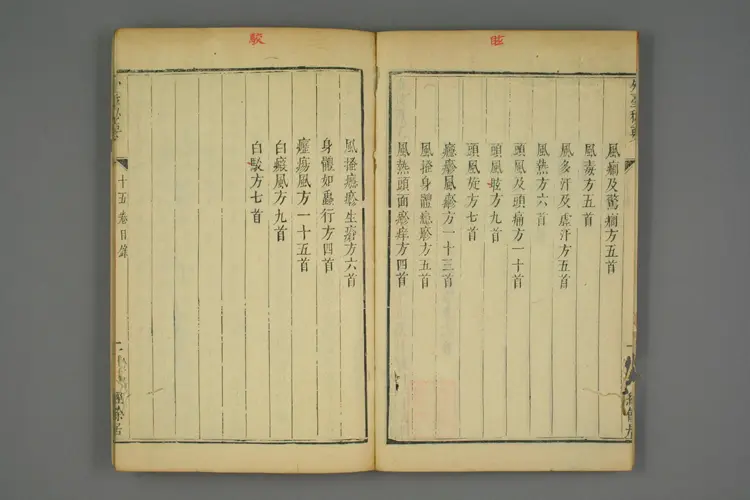 眩
風癇及驚癇方五首
風毒方五首
風多汗及虛汗方五首
風熱方六首
頭風及頭痛方一十首
頭風眩方九首
頭風旋方七首
癮疹風疹方一十三首
風搔身體癮疹方五首
風熱頭面疹痒方四首
駮
風搔癮疹生瘡方六首
身體如蟲行方四首
癧瘍風方一十五首
白癜風方九首
白駮方七首
十五卷目錄